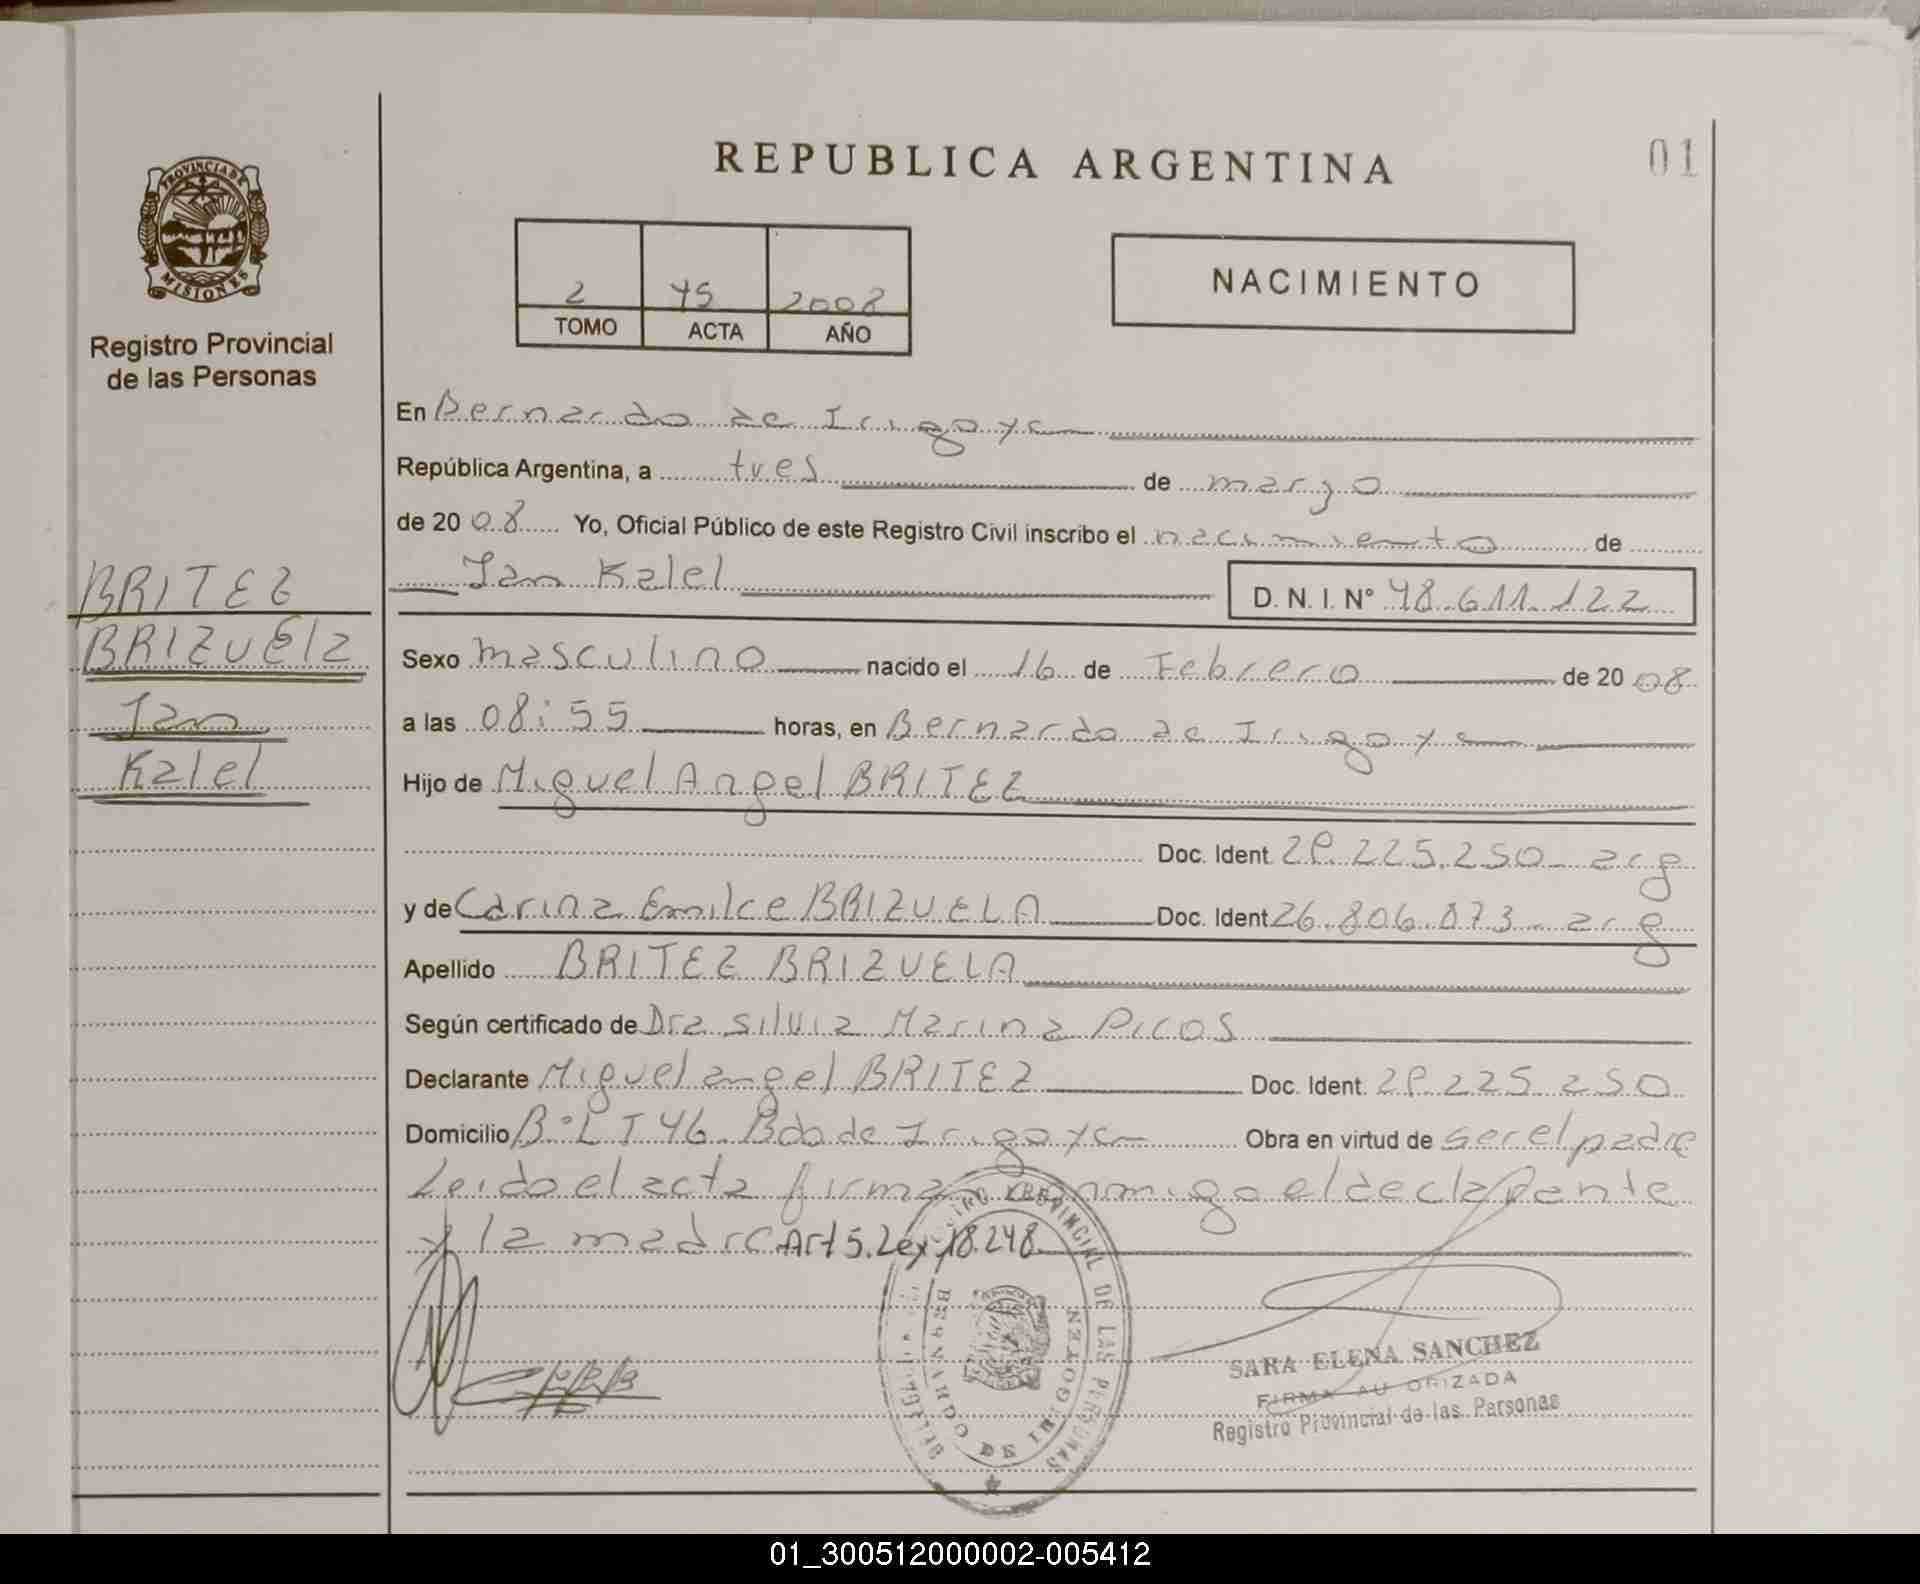 REPUBLICA ARGENTINA
01
PROVINCIA DE
MISIONES
Registro Provincial
de las Personas
2 45 2008
TOMO ACTA AÑO
NACIMIENTO
En Bernardo de Irigoyen
República Argentina, a tres de marzo
de 20 08 Yo, Oficial Público de este Registro Civil inscribo el nacimiento de
Ian Kalel D. N. I. N° 48.611.122
BRITEZ
BRIZUEla
Ian
Kalel
Sexo masculino nacido el 16 de Febrero de 20 08
a las 08:55 horas, en Bernardo de Irigoyen
Hijo de Miguel Angel BRITEZ
Doc. Ident. 28.225.250 arg
y de Carina Emilce BRIZUELA Doc. Ident 26.806.873 arg
Apellido BRITEZ BRIZUELA
Según certificado de Dra silvia Marina Picos
Declarante Miguel angel BRITEZ Doc. Ident. 28.225.250
Domicilio B° LT 46 Bdo de Irigoyen Obra en virtud de ser el padre
Leido el acta firma conmigo el declarante
y la madre Art 5. Ley 18.248
REGISTRO PROVINCIAL DE LAS PERSONAS
BERNARDO DE IRIGOYEN
SARA ELENA SANCHEZ
FIRMA AUTORIZADA
Registro Provincial de las Personas
01_300512000002-005412